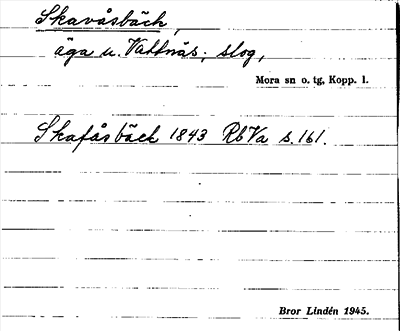 Skavåsbäck,
äga u. Vattnäs; slog,
Mora sn o. tg, Kopp. l.
Skafåsbäck 1843 RbVa s. 161.
Bror Lindén 1945.